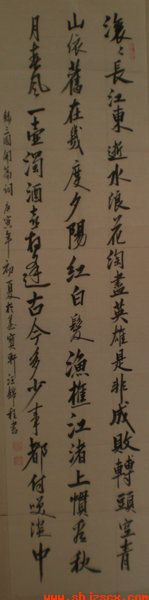 滾〻長江東逝水浪花淘盡英雄是非成敗轉頭空青
山依舊在幾度夕陽紅白髮漁樵江渚上慣看秋
月春風一壺濁酒喜相逢古今多少事都付笑談中
三國開篇詞庚寅年初夏於墨寶軒